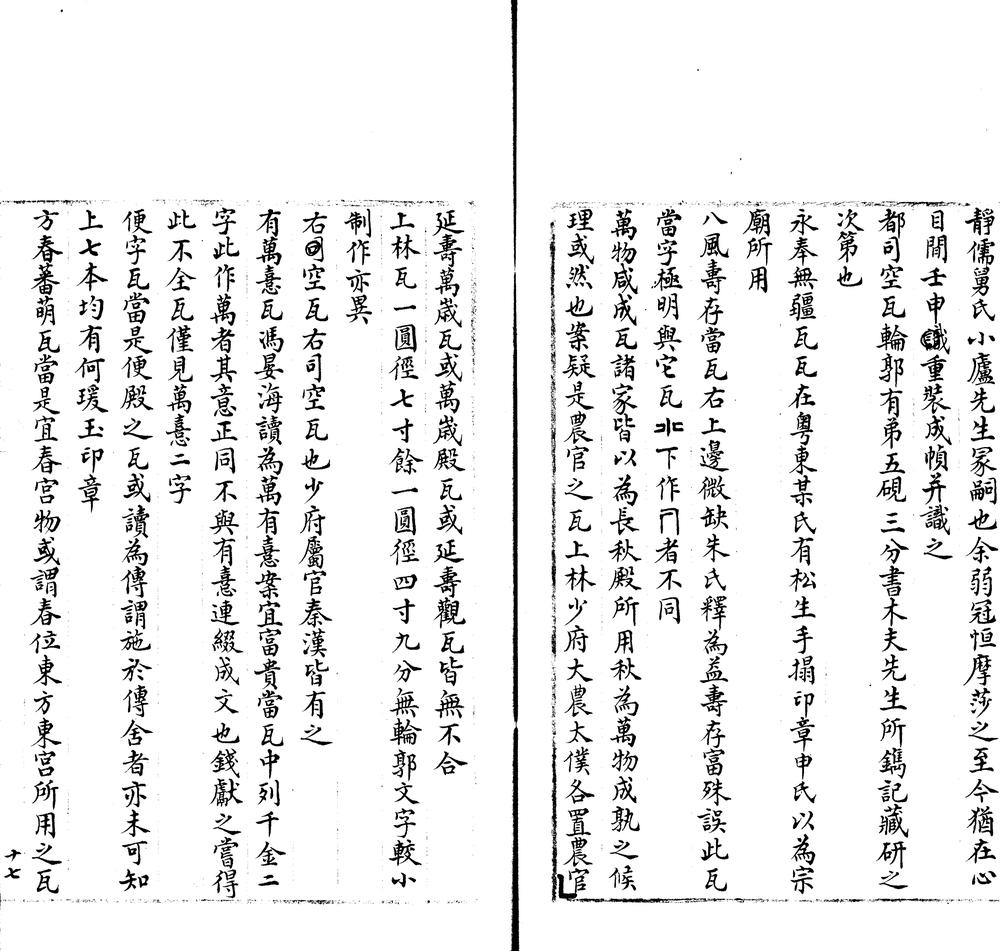 靜儒舅氏小廬先生冢嗣也余弱冠恒摩莎之至今猶在心
目閒壬申識重裝成幀并識之
都司空瓦輪郭有弟五硯三分書木夫先生所鐫記藏研之
次第也
永奉無疆瓦瓦在粵東某氏有松生手搨印章申氏以為宗
廟所用
八風壽存當瓦右上邊微缺朱氏釋為益壽存富殊誤此瓦
當字極明與它瓦北下作冂者不同
萬物咸成瓦諸家皆以為長秋殿所用秋為萬物成孰之候
理或然也案疑是農官之瓦上林少府大農太僕各置農官
延壽萬歲瓦或萬歲殿瓦或延壽觀瓦皆無不合
上林瓦一圓徑七寸餘一圓徑四寸九分無輪郭文字較小
制作亦異
右空瓦右司空瓦也少府屬官秦漢皆有之
有萬憙瓦馮晏海讀為萬有憙案宜富貴當瓦中列千金二
字此作萬者其意正同不與有憙連綴成文也錢獻之嘗得
此不全瓦僅見萬憙二字
便字瓦當是便殿之瓦或讀為傳謂施於傳舍者亦未可知
上七本均有何瑗玉印章
方春蕃萌瓦當是宜春宮物或謂春位東方東宮所用之瓦
十七